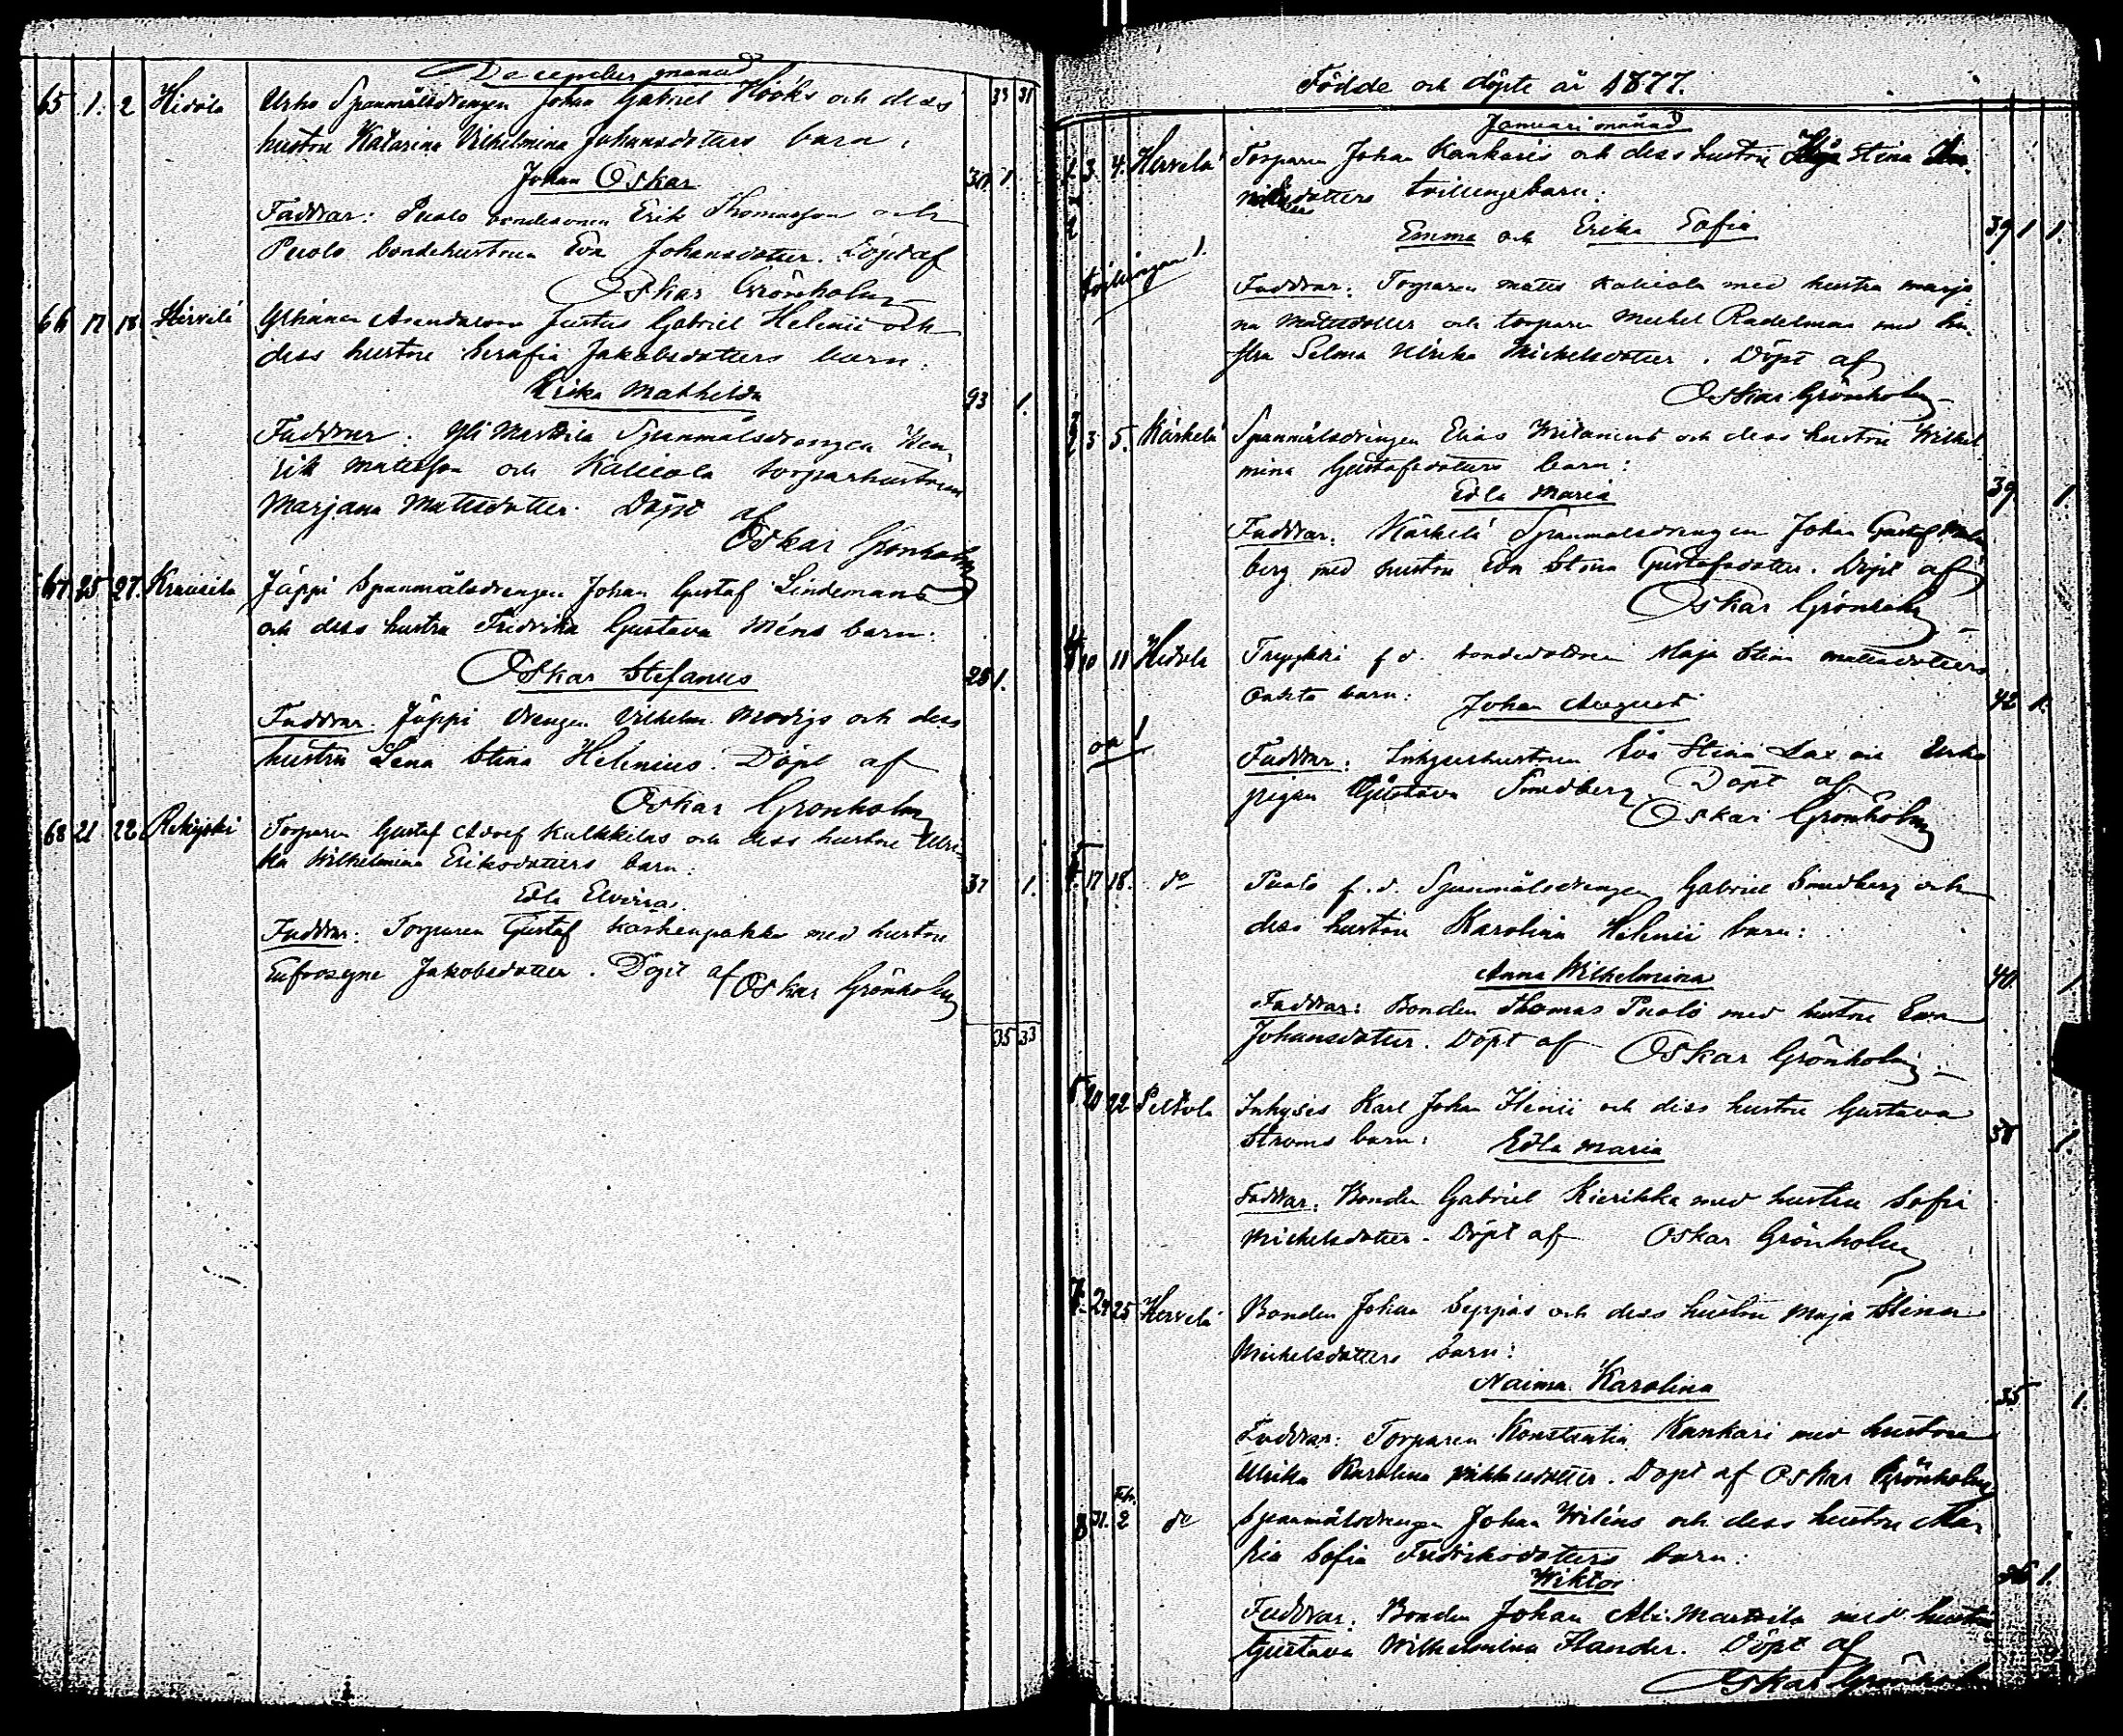 December månad
33 31
65 1. 2 Hidola Urho Spanmålsdrengen Johan Gabriel Hööks och dess
hustru Katarina Vilhelmina Johansdotters barn:
Johan Oskar 1
Faddrar: Puolo bondesonen Erik Thomasson och
Puolo bondehustrun Eva Johansdotter. Döpt af
Oskar Grönholm
66 17 18 Hirvelä Justus Gabriel Helenii och
dess hustru Serafia Jakobsdotters barn:
Erika Mathilda 1.
Faddrar: Yli Marttila Spanmålsdrengen Hen-
rik Mattsson och Kalliola torparhustrun
Marjana Mattsdotter. Döpt af
Oskar Grönholm
67 25 27. Krauvila Jäppi Spanmålsdrengen Johan Gustaf Lindemans
och dess hustru Fredrika Gustava barn:
Oskar Stefanus 28 1.
Faddrar. Jäppi drengen Vilhelm Modigs och dess
hustru Lena Stina Helenius. Döpt af
Oskar Grönholm
68 21 22 Rekijoki Torparen Gustaf Adolf Kulkkilas och dess hustru Ulri-
ka Wilhelmina Eriksdotters barn:
Edla Elviira. 1.
Faddrar: Torparen Gustaf med hustru
Eufrosyne Jakobsdotter. Döpt af Oskar Grönholm
35 33
Födde och döpte år 1877.
Januari månad
1 3. 4. Hirvelä Torparen Johan Kankaris och dess hustru Stina
dotters tvillingebarn:
2 Emma och Erika Sofia 39 1 1.
tvillingar 1.
Faddrar: Torparen Matts Kalliola med hustru Marja-
na Mattsdotter och torparen Mickel Radelmas med hu-
stru Selma Ulrika Mickelsdotter. Döpt af
Oskar Grönholm
3 5. Kärkelä Spanmålsdrengen Elias och dess hustru Wilhel
mina Gustafsdotters barn:
Edla Maria 39 1.
Faddrar: Kärkelä Spanmålsdrengen Johan Gustaf
berg med hustru Eva Stina Gustafsdotter. Döpt af
Oskar Grönholm
10 11 Hidola f. d. bondedottren Maja Stina Mattsdotters
oäkta barn: Johan August 42 1.
oä 1
Faddrar: Inhyseshustrun Eva Stina Lax och Urho
pigan Gustava Smedberg. Döpt af
Oskar Grönholm
17 18. do Puolo f. d. Spanmålsdrengen Gabriel Smedberg och
dess hustru Karolina Helenii barn:
Anna Wilhelmina 40. 1
Faddrar: Bonden Thomas Puolo med hustru Eva
Johansdotter. Döpt af Oskar Grönholm
6 20 22 Peltola Inhyses Karl Johan och dess hustru Gustava
Ströms barn: Edla Maria 38 1.
Faddrar: Bonden Gabriel Kierikka med hustru Sofia
Michelsdotter. Döpt af Oskar Grönholm
7. 24 25 Hirvelä Bonden Johan Seppäs och dess hustru Maja Stina
Michelsdotters barn:
Naima Karolina 35 1.
Faddrar: Torparen Konstantin Kankari med hustru
Ulrika Karolina dotter. Döpt af Oskar Grönholm
Feb.
8 31. 2 do Spanmålsdrengen Johan Wiléns och dess hustru Ma
ria Sofia Fredriksdotters barn:
Wiktor 1.
Faddrar: Bonden Johan Ali Marttila med hustru
Gustava Wilhelmina Flander. Döpt af
Oskar Grönholm